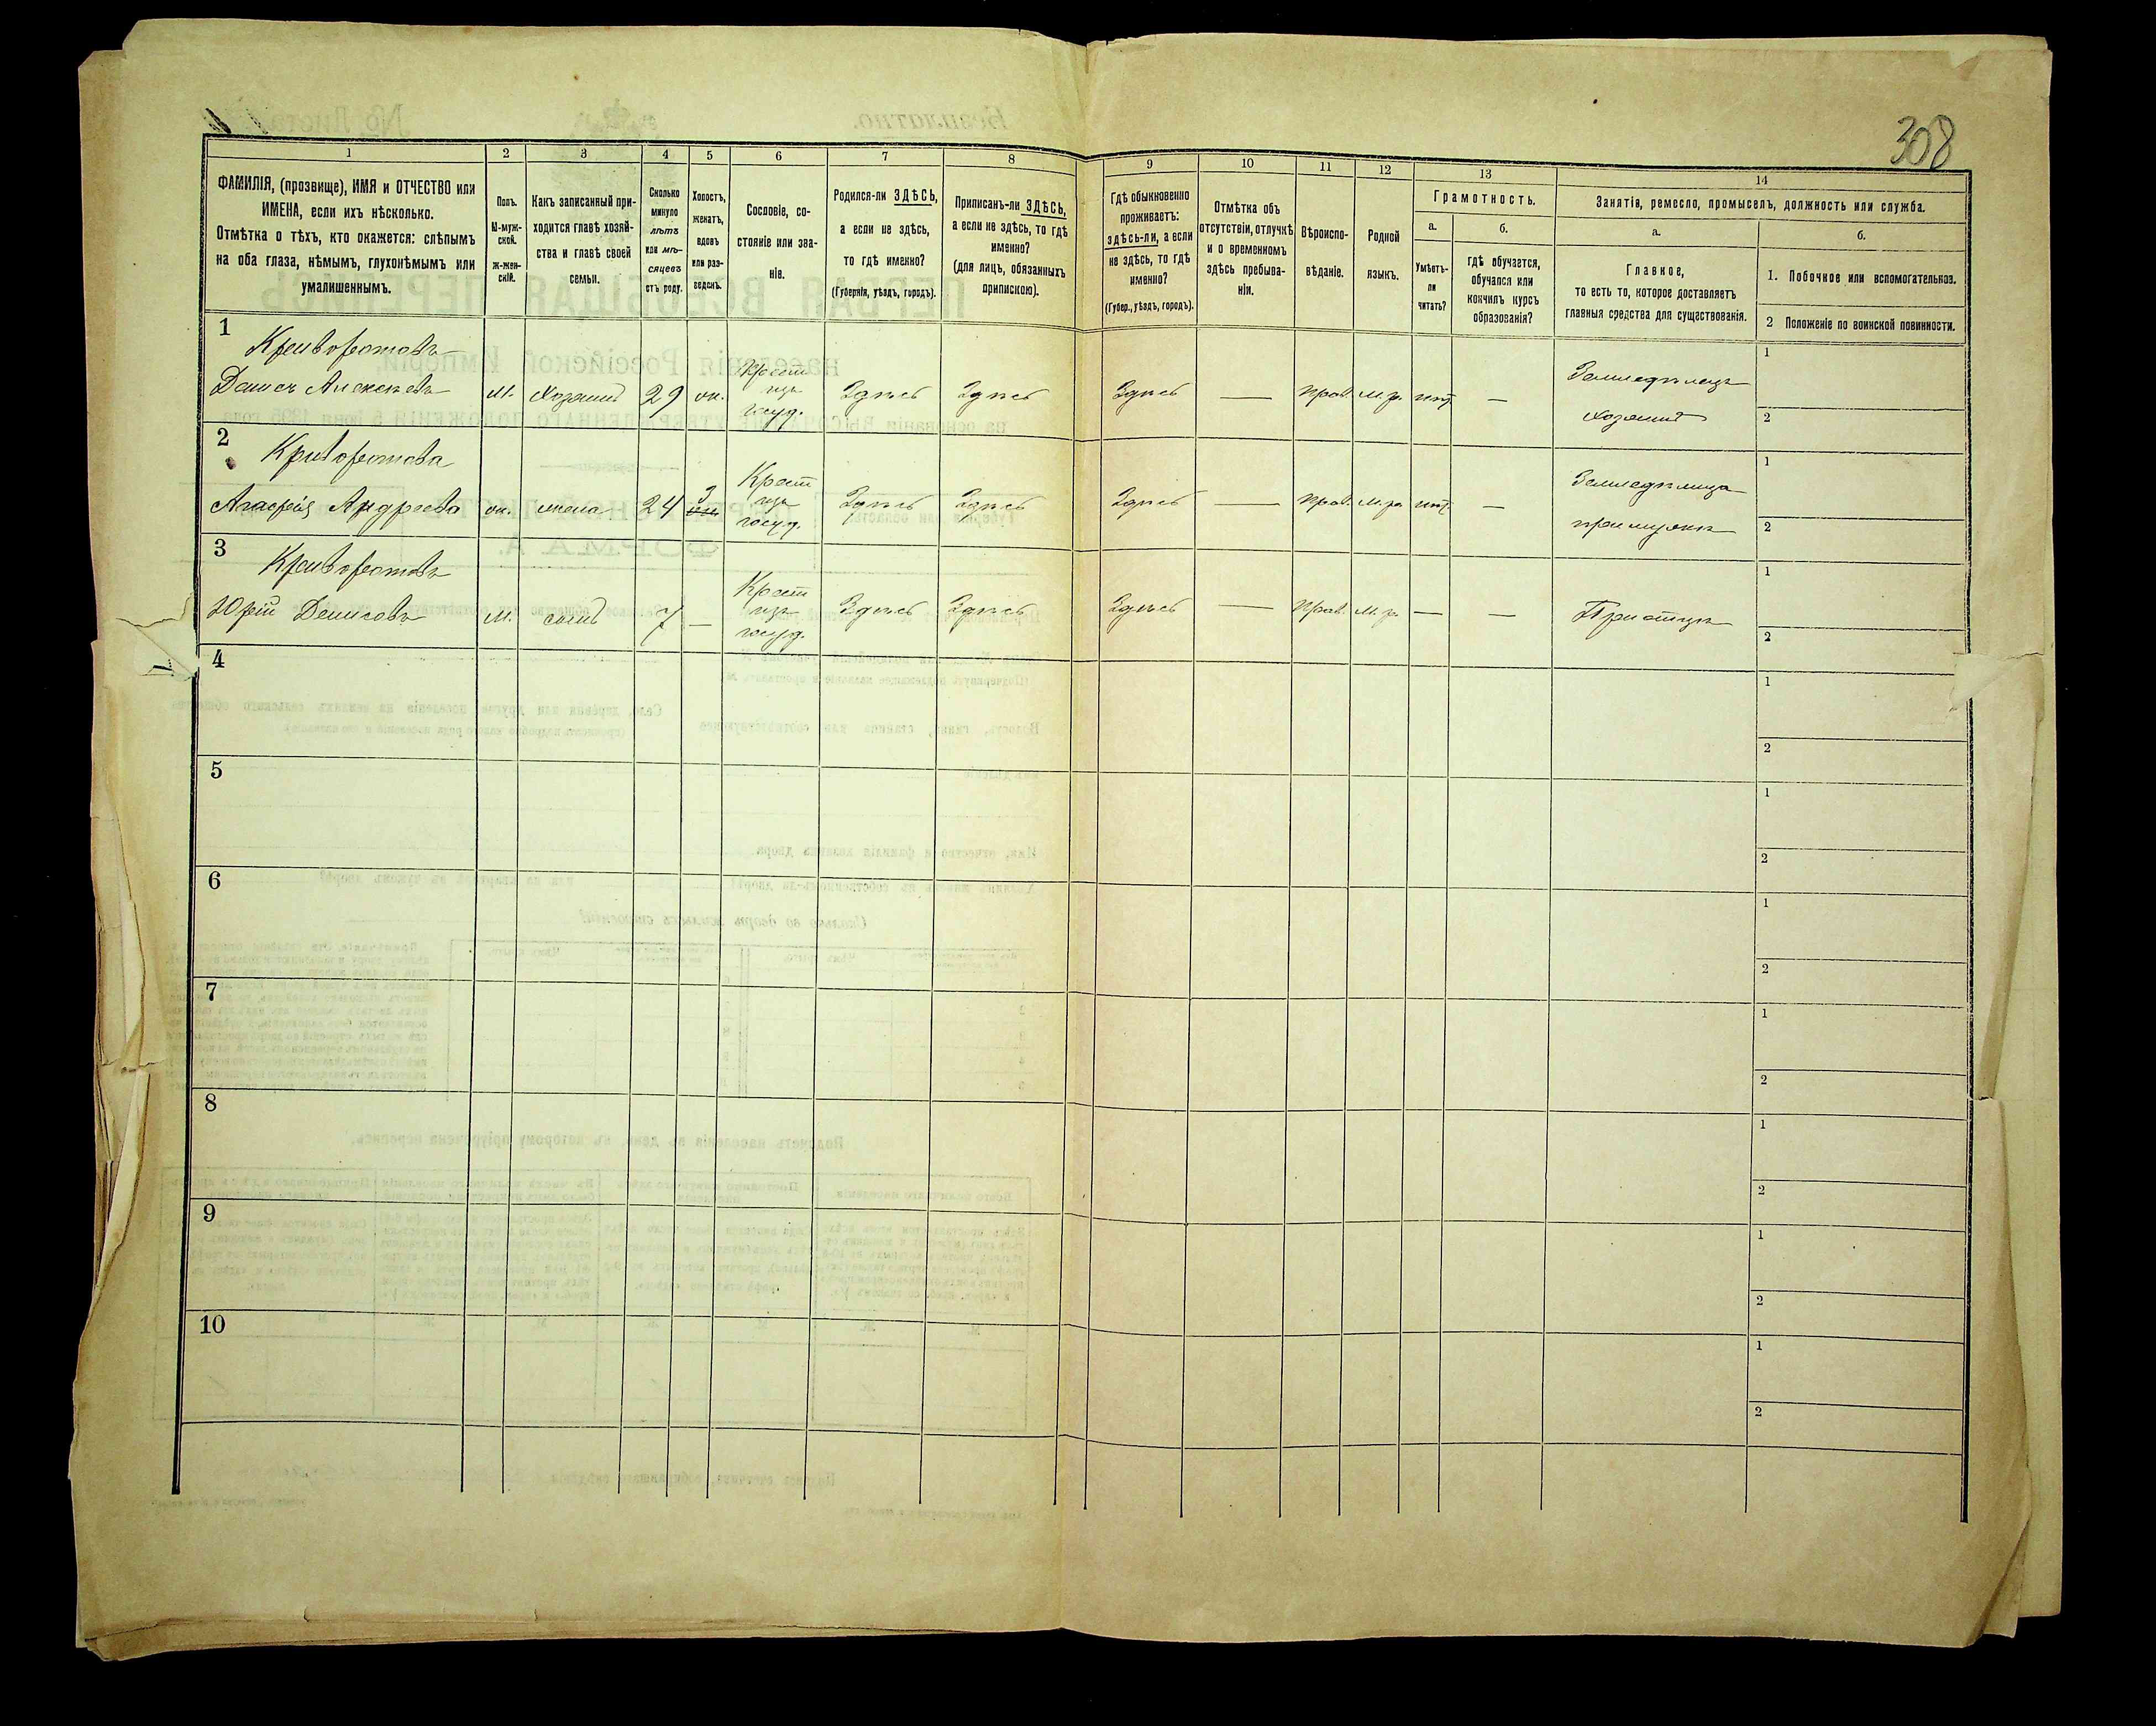 308
1 2 3 4 5 6 7 8 9 10 11 12 13 14
ФАМИЛІЯ, (прозвище), ИМЯ и ОТЧЕСТВО или
ИМЕНА, если ихъ нѣсколько.
Отмѣтка о тѣхъ, кто окажется: слѣпымъ
на оба глаза, нѣмымъ, глухонѣмымъ или
умалишеннымъ.
Полъ.
М-муж-
ской.
Ж-жен-
скій.
Какъ записанный при-
ходится главѣ хозяй-
ства и главѣ своей
семьи.
Сколько
минуло
лѣтъ
или мѣ-
сяцевъ
отъ роду.
Холостъ,
женатъ,
вдовъ
или раз-
веденъ.
Сословіе, со-
стояніе или зва-
ніе.
Родился-ли ЗДѢСЬ,
а если не здѣсь,
то гдѣ именно?
(Губернія, уѣздъ, городъ).
Приписанъ-ли ЗДѢСЬ,
а если не здѣсь, то гдѣ
именно?
(для лицъ, обязанныхъ
припискою).
Гдѣ обыкновенно
проживаетъ:
здѣсь-ли, а если
не здѣсь, то гдѣ
именно?
(Губер., уѣздъ, городъ).
Отмѣтка объ
отсутствіи, отлучкѣ
и о временномъ
здѣсь пребыва-
ніи.
Вѣроиспо-
вѣданіе.
Родной
языкъ.
Грамотность.
а. б.
Умѣетъ-
ли
читать?
гдѣ обучается,
обучался или
кончилъ курсъ
образованія?
Занятія, ремесло, промыселъ, должность или служба.
а. б.
Главное,
то есть то, которое доставляетъ
главныя средства для существованія.
1. Побочное или вспомогательное.
2 Положеніе по воинской повинности.
1
Криворотовъ
Денисъ Алексѣевъ м. хозяинъ 29 ж. Крест изъ госуд. Здѣсь Здѣсь Здѣсь — Прав. м.р. нѣт — Земледѣлецъ хозяинъ
1
2
2
Криворотова
Агафія Андреева ж. жена 24 з Крест изъ госуд. Здѣсь Здѣсь Здѣсь — Прав. м.р. нѣт — Земледѣлица при мужѣ
1
2
3
Криворотовъ
Юрій Денисовъ м. сынъ 7 — Крест изъ госуд. Здѣсь Здѣсь Здѣсь — Прав. м.р. — — При отцѣ
1
2
4
1
2
5
1
2
6
1
2
7
1
2
8
1
2
9
1
2
10
1
2